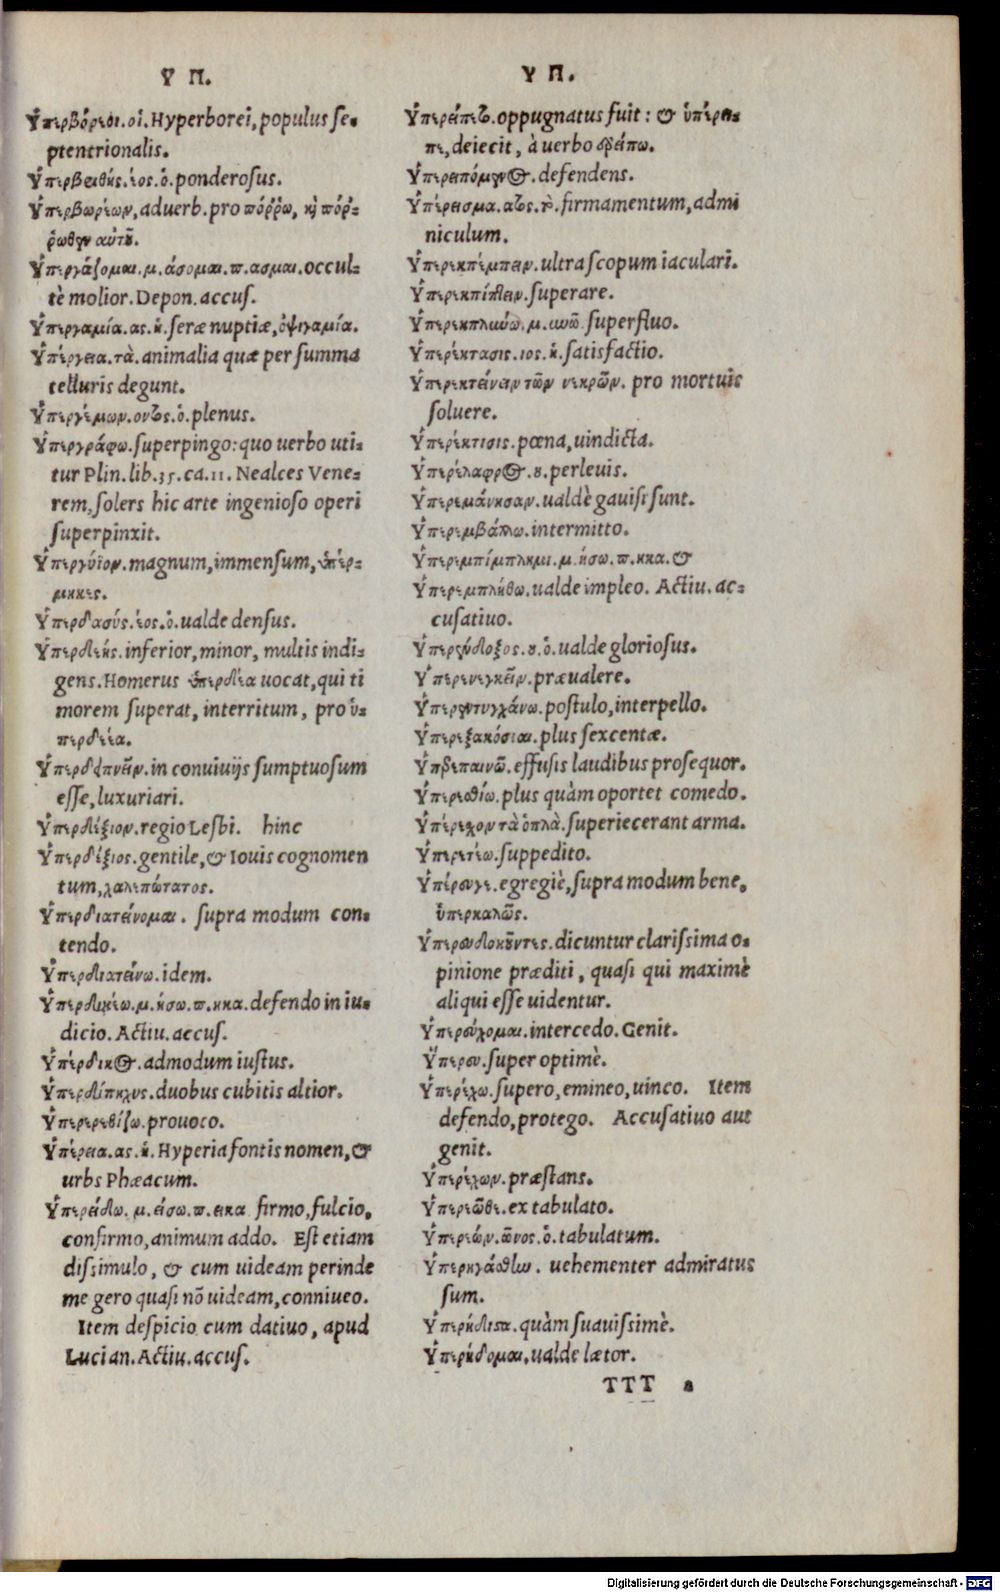 Υ Π.
Ὑπερβόρεοι.οἱ.Hyperborei, populus se-
ptentrionalis.
Ὑπερβριθής.έος.ὁ.ponderosus.
Ὑπερβωρέων, aduerb. pro πόῤῥω, κὴ πόῤ-
ῥωθεν αὐτοῦ.
Ὑπεργάζομαι.μ.άσομαι.π.ασμαι.occul-
tè molior. Depon. accus.
Ὑπεργαμία.ας.ἡ.seræ nuptiæ, ὀψιγαμία.
Ὑπέργεια.τὰ.animalia quæ per summa
telluris degunt.
Ὑπεργέμων.οντος.ὁ.plenus.
Ὑπεργράφω.superpingo: quo uerbo uti-
tur Plin. lib. 35. ca. 11. Nealces Vene-
rem, solers hic arte ingenioso operi
superpinxit.
Ὑπεργύϊον.magnum, immensum, ὑπέρ-
μηκες.
Ὑπερδασύς.έος.ὁ.ualde densus.
Ὑπερδεής.inferior, minor, multis indi-
gens. Homerus ὑπερδέα uocat, qui ti
morem superat, interritum, pro ὑ-
περδεέα.
Ὑπερδειπνεῖν.in conuiuijs sumptuosum
esse, luxuriari.
Ὑπερδέξιον.regio Lesbi. hinc
Ὑπερδέξιος.gentile, & Iouis cognomen
tum, χαλεπώτατος.
Ὑπερδιατείνομαι. supra modum con-
tendo.
Ὑπερδιατείνω.idem.
Ὑπερδικέω.μ.ήσω.π.ηκα.defendo in iu-
dicio. Actiu. accus.
Ὑπέρδικος.admodum iustus.
Ὑπερδίπηχυς.duobus cubitis altior.
Ὑπερερεθίζω.prouoco.
Ὑπέρεια.ας.ἡ.Hyperia fontis nomen, &
urbs Phæacum.
Ὑπερείδω.μ.είσω.π.εικα firmo, fulcio,
confirmo, animum addo. Est etiam
dissimulo, & cum uideam perinde
me gero quasi nõ uideam, conniueo.
Item despicio cum datiuo, apud
Lucian. Actiu. accus.
Υ Π.
Ὑπερείπετο.oppugnatus fuit: & ὑπέρει-
πε, deiecit, à uerbo ἐρείπω.
Ὑπερειπόμενος.defendens.
Ὑπέρεισμα.ατος.τὸ.firmamentum, admi
niculum.
Ὑπερεκπέμπειν.ultra scopum iaculari.
Ὑπερεκπίπτειν.superare.
Ὑπερεκπλημύω.μ.superfluo.
Ὑπερέκτασις.ιος.ἡ.satisfactio.
Ὑπερεκτείνειν τῶν νεκρῶν. pro mortuis
soluere.
Ὑπερέκτισις.pœna, uindicta.
Ὑπερέλαφρος.ου.perleuis.
Ὑπερεμάνησαν.ualdè gauisi sunt.
Ὑπερεμβάλλω.intermitto.
Ὑπερεμπίμπλημι.μ.ήσω.π.ηκα.&
Ὑπερεμπλήθω.ualde impleo. Actiu. ac-
cusatiuo.
Ὑπερένδοξος.ου.ὁ.ualde gloriosus.
Ὑπερενεγκεῖν.præualere.
Ὑπερεντυγχάνω.postulo, interpello.
Ὑπερεξακόσιαι.plus sexcentæ.
Ὑπερεπαινῶ.effusis laudibus prosequor.
Ὑπερεσθίω.plus quàm oportet comedo.
Ὑπέρεχον τὰ ὁπλὰ.superiecerant arma.
Ὑπερετέω.suppedito.
Ὑπέρευγε.egregiè, supra modum bene,
ὑπερκαλῶς.
Ὑπερευδοκοῦντες.dicuntur clarissima o-
pinione præditi, quasi qui maximè
aliqui esse uidentur.
Ὑπερεύχομαι.intercedo. Genit.
Ὑπερευ.super optimè.
Ὑπερέχω.supero, emineo, uinco. Item
defendo, protego. Accusatiuo aut
genit.
Ὑπερέχων.præstans.
Ὑπερεῶθε.ex tabulato.
Ὑπερεών.ῶνος.ὁ.tabulatum.
Ὑπερηγάσθην. uehementer admiratus
sum.
Ὑπερήδιστα.quàm suauissimè.
Ὑπερήδομαι.ualde lætor.
TTT a
Digitalisierung gefördert durch die Deutsche Forschungsgemeinschaft - DFG